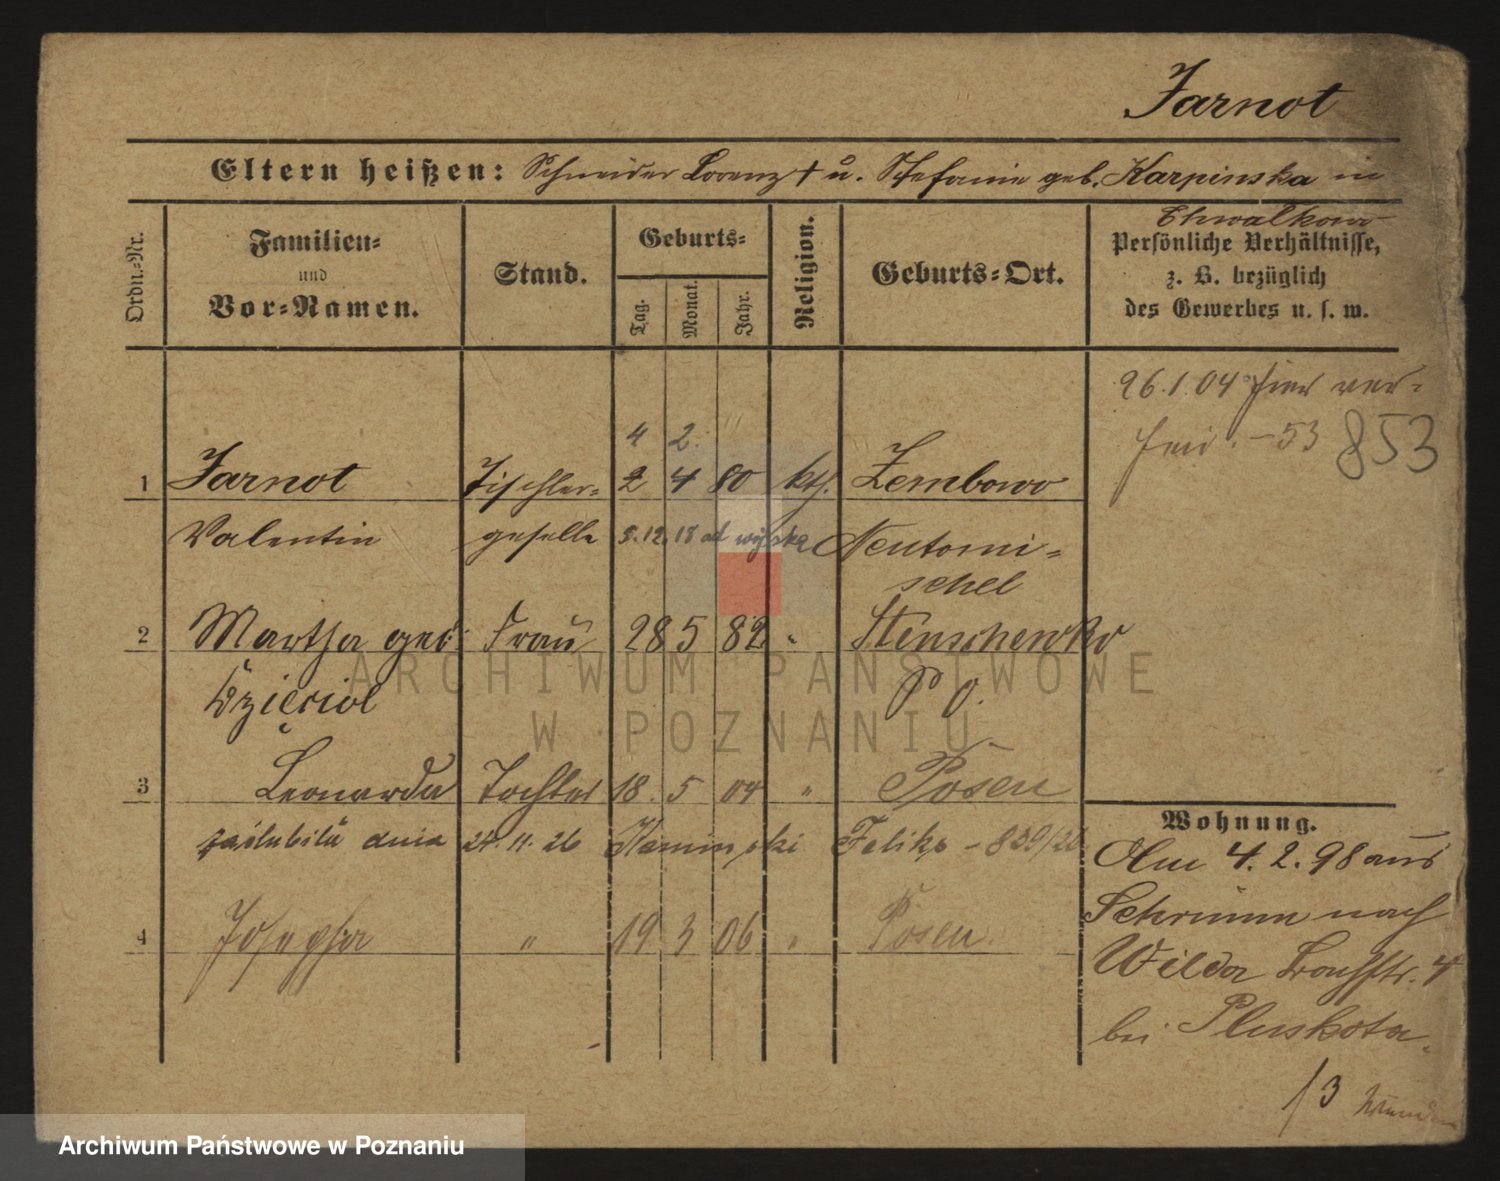 Jarnot
Eltern heißen: Schneider Lorenz † u. Stefanie geb. Karpinska in
Chwalkowo
Ordn.-Nr.
Familien-
und
Vor-Namen.
Stand.
Geburts-
Tag.
Monat.
Jahr.
Religion.
Geburts-Ort.
Persönliche Verhältnisse,
z. B. bezüglich
des Gewerbes u. s. w.
26.1.04 hier ver-
- 53
853
4 2.
1 Jarnot Tischler- 2 4 80 kth. Zembowo
Valentin geselle 5.12.18 Neutomi-
schel
2 Martha geb. Frau 28 5 82 " Stenschewko
Dzięciol P O.
3 Leonarda Tochter 18 5 04 " Posen
zaślubiła dnia 24.11.26 Kaminski Feliks - 839/26
4 Josepha " 19 3 06 " Posen.
Wohnung.
Am 4.2.98 aus
Schrimm nach
Wilda 4
bei Pluskota.
/3
ARCHIWUM PAŃSTWOWE
W POZNANIU
Archiwum Państwowe w Poznaniu